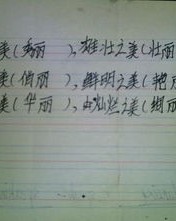 美(秀丽 ),雄壮之美(壮丽
美(俏丽 ),鲜明之美(艳丽
美(华丽 ),灿烂之美(绚丽